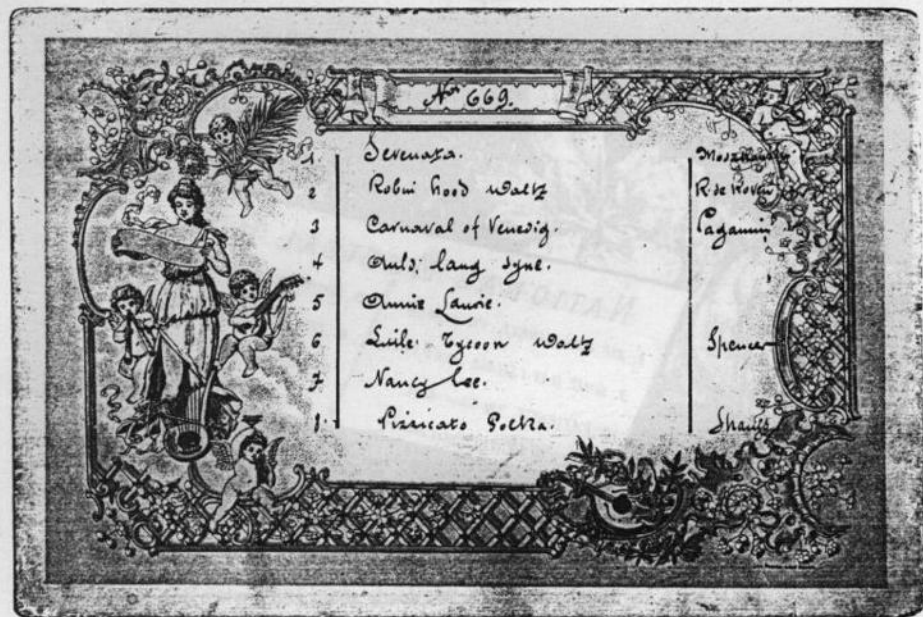 No. 669.
1 Serenata. Moszkowski
2 Robin hood Waltz R. de Koven
3 Carnaval of Venedig. Paganini
4 Auld lang syne.
5 Annie Laurie.
6 Tycoon Waltz Spencer
7 Nancy Lee.
8 Pizzicato Polka. Strauss